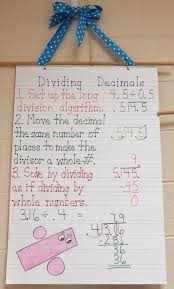 Dividing Decimals
1. Set up the long 4.5÷0.5
division algorithm. .5⟌4.5
2. Move the decimal
the same number of .5⟌4.5
places to make the
divisor a whole #. 9.
3. Solve by dividing 5⟌45.
as if dividing by -45
whole numbers. 0
31.6 ÷ .4 = 79
4⟌316
-28
36
36